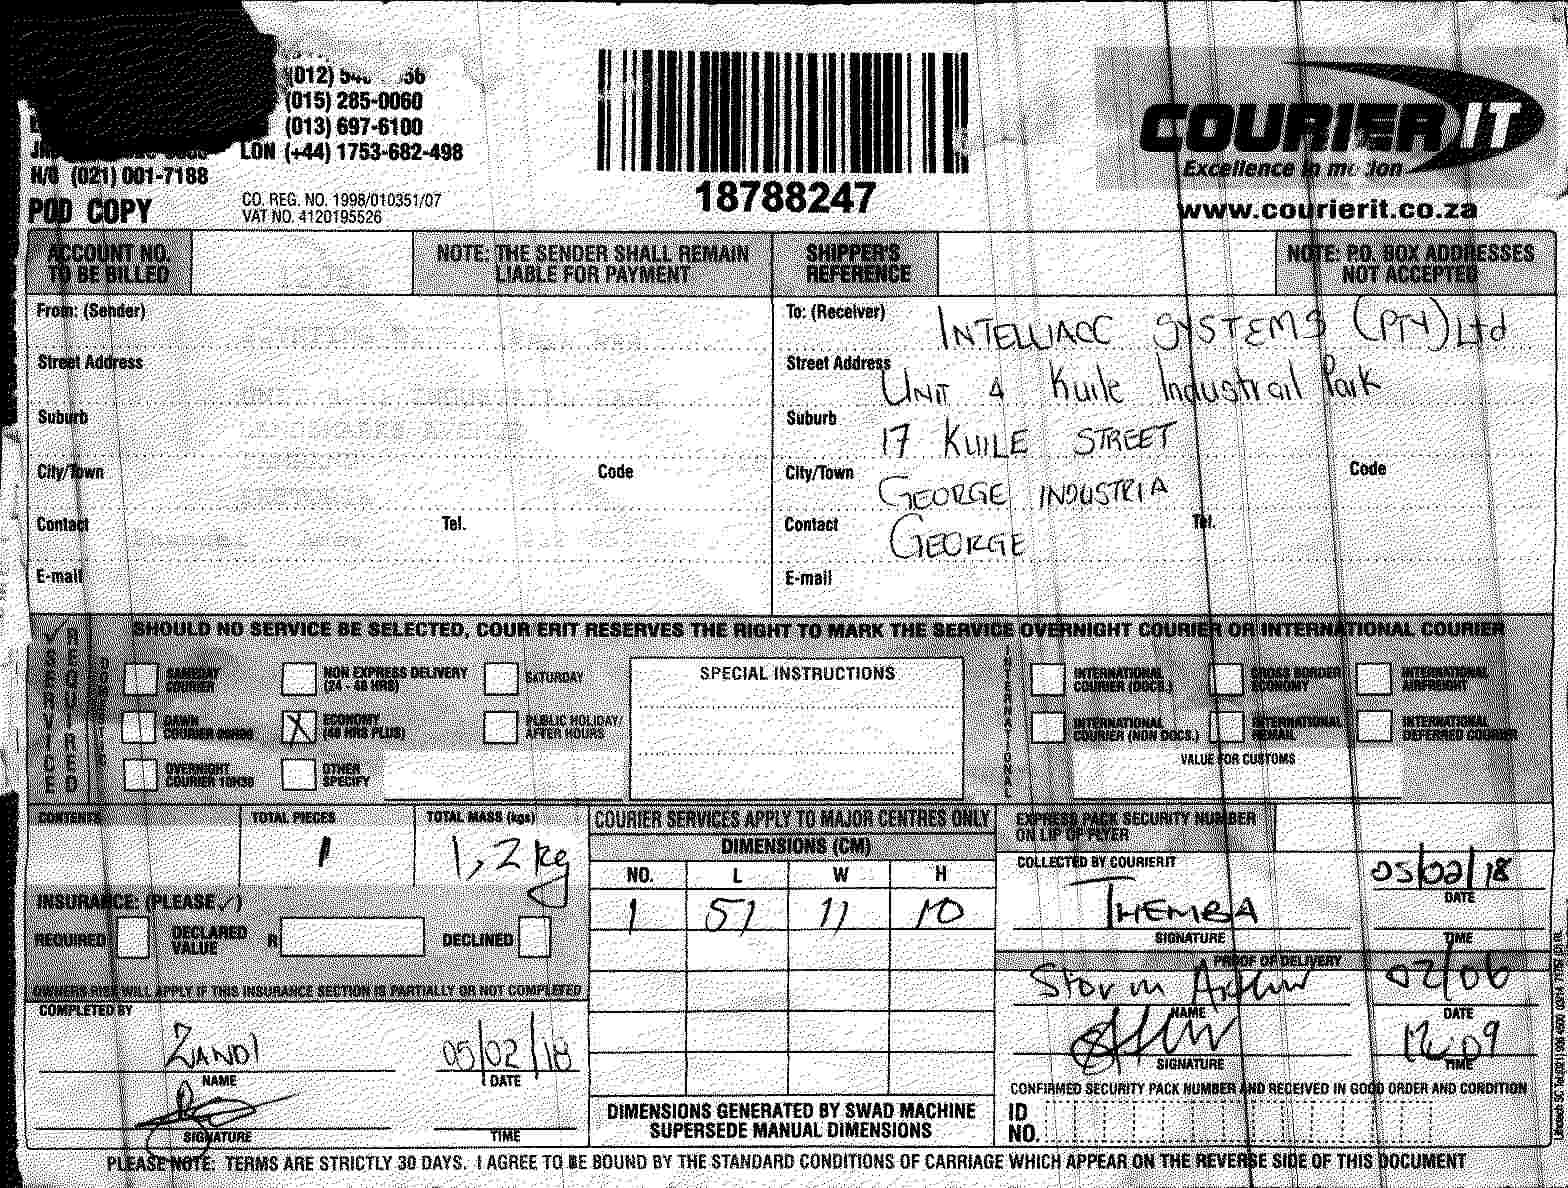 (015) 285-0060
(013) 697-6100
LON (+44) 1753-682-498
H/O (021) 001-7188
POD COPY
CO. REG. NO. 1998/010351/07
VAT NO. 4120195526
18788247
COURIER IT
Excellence in motion
www.courierit.co.za
ACCOUNT NO. TO BE BILLED
NOTE: THE SENDER SHALL REMAIN LIABLE FOR PAYMENT
SHIPPER'S REFERENCE
NOTE: P.O. BOX ADDRESSES NOT ACCEPTED
From: (Sender)
Street Address
Suburb
City/Town Code
Contact Tel.
E-mail
To: (Receiver) INTELLIACC SYSTEMS (PTY) Ltd
Street Address UNIT 4 Kuile Industrail Park
Suburb 17 KUILE STREET
City/Town GEORGE INDUSTRIA Code
Contact GEORGE Tel.
E-mail
SHOULD NO SERVICE BE SELECTED, COUR ERIT RESERVES THE RIGHT TO MARK THE SERVICE OVERNIGHT COURIER OR INTERNATIONAL COURIER
SERVICE REQUIRED
DOMESTIC
SAMEDAY COURIER
NON EXPRESS DELIVERY (24 - 48 HRS)
SATURDAY
DAWN COURIER
X ECONOMY (48 HRS PLUS)
PUBLIC HOLIDAY/ AFTER HOURS
OVERNIGHT COURIER 10H30
OTHER SPECIFY
SPECIAL INSTRUCTIONS
INTERNATIONAL
INTERNATIONAL COURIER (DOCS.)
CROSS BORDER ECONOMY
INTERNATIONAL AIRFREIGHT
INTERNATIONAL COURIER (NON DOCS.)
INTERNATIONAL REMAIL
INTERNATIONAL DEFERRED COURIER
VALUE FOR CUSTOMS
CONTENTS
TOTAL PIECES
1
TOTAL MASS (kgs)
1,2 kg
INSURANCE: (PLEASE ✓)
REQUIRED DECLARED VALUE R DECLINED
OWNERS RISK WILL APPLY IF THIS INSURANCE SECTION IS PARTIALLY OR NOT COMPLETED
COMPLETED BY
ZANDI 05/02/18
NAME DATE
SIGNATURE TIME
COURIER SERVICES APPLY TO MAJOR CENTRES ONLY
DIMENSIONS (CM)
NO. L W H
1 51 11 10
DIMENSIONS GENERATED BY SWAD MACHINE
SUPERSEDE MANUAL DIMENSIONS
EXPRESS PACK SECURITY NUMBER
ON LIP OF FLYER
COLLECTED BY COURIERIT
05/02/18
DATE
THEMBA
SIGNATURE TIME
PROOF OF DELIVERY
Storm Arthur 02/06
NAME DATE
SIGNATURE TIME
CONFIRMED SECURITY PACK NUMBER AND RECEIVED IN GOOD ORDER AND CONDITION
ID NO.
PLEASE NOTE: TERMS ARE STRICTLY 30 DAYS. I AGREE TO BE BOUND BY THE STANDARD CONDITIONS OF CARRIAGE WHICH APPEAR ON THE REVERSE SIDE OF THIS DOCUMENT